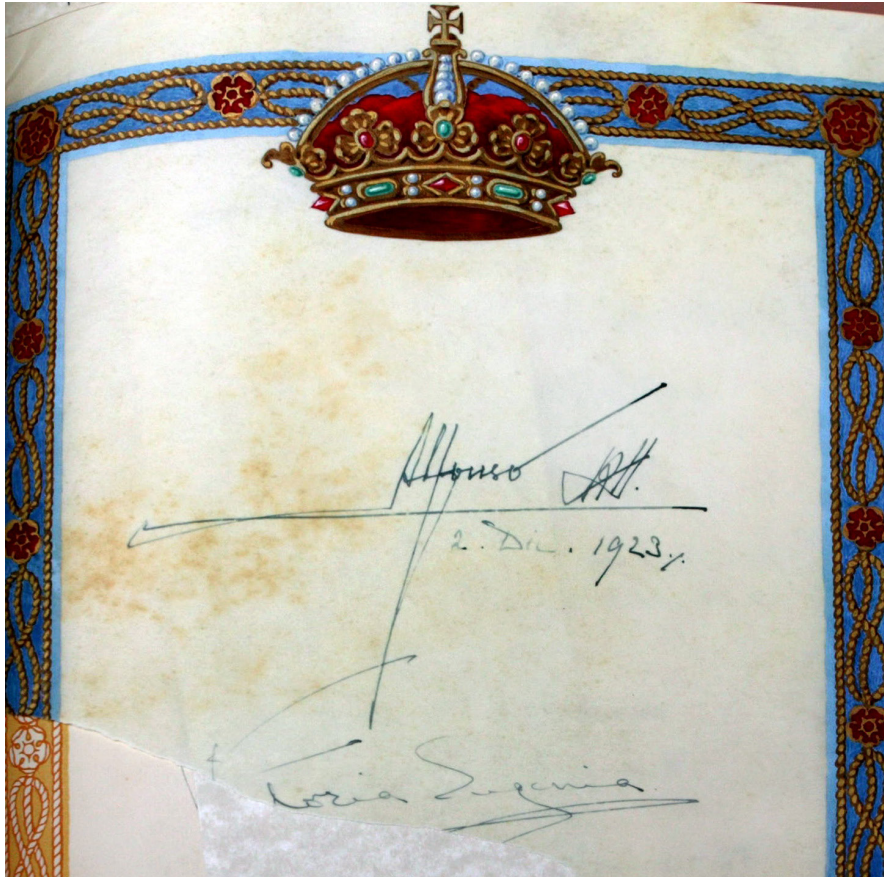 Alfonso XIII.
2. Dic. 1923
Victoria Eugenia